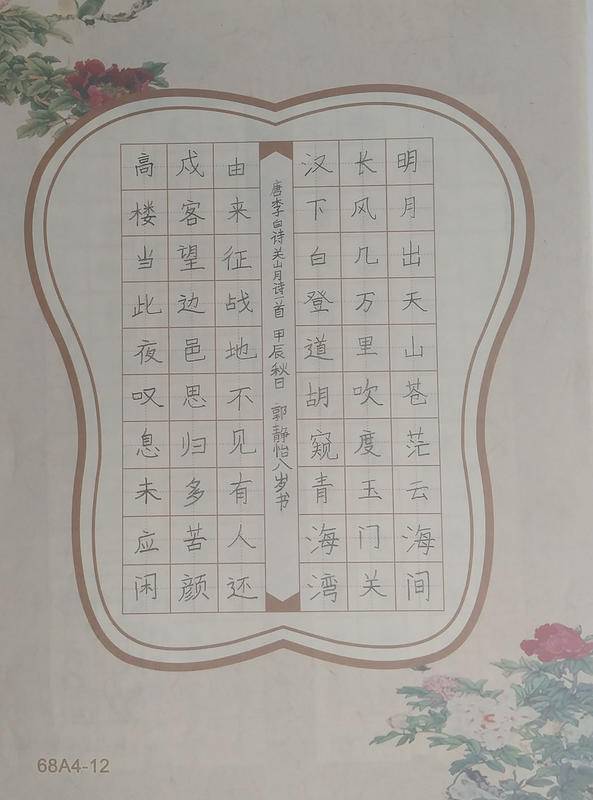 明月出天山苍茫云海间
长风几万里吹度玉门关
汉下白登道胡窥青海湾
唐李白诗关山月诗一首 甲辰秋日 郭静怡八岁书
由来征战地不见有人还
戍客望边邑思归多苦颜
高楼当此夜叹息未应闲
68A4-12